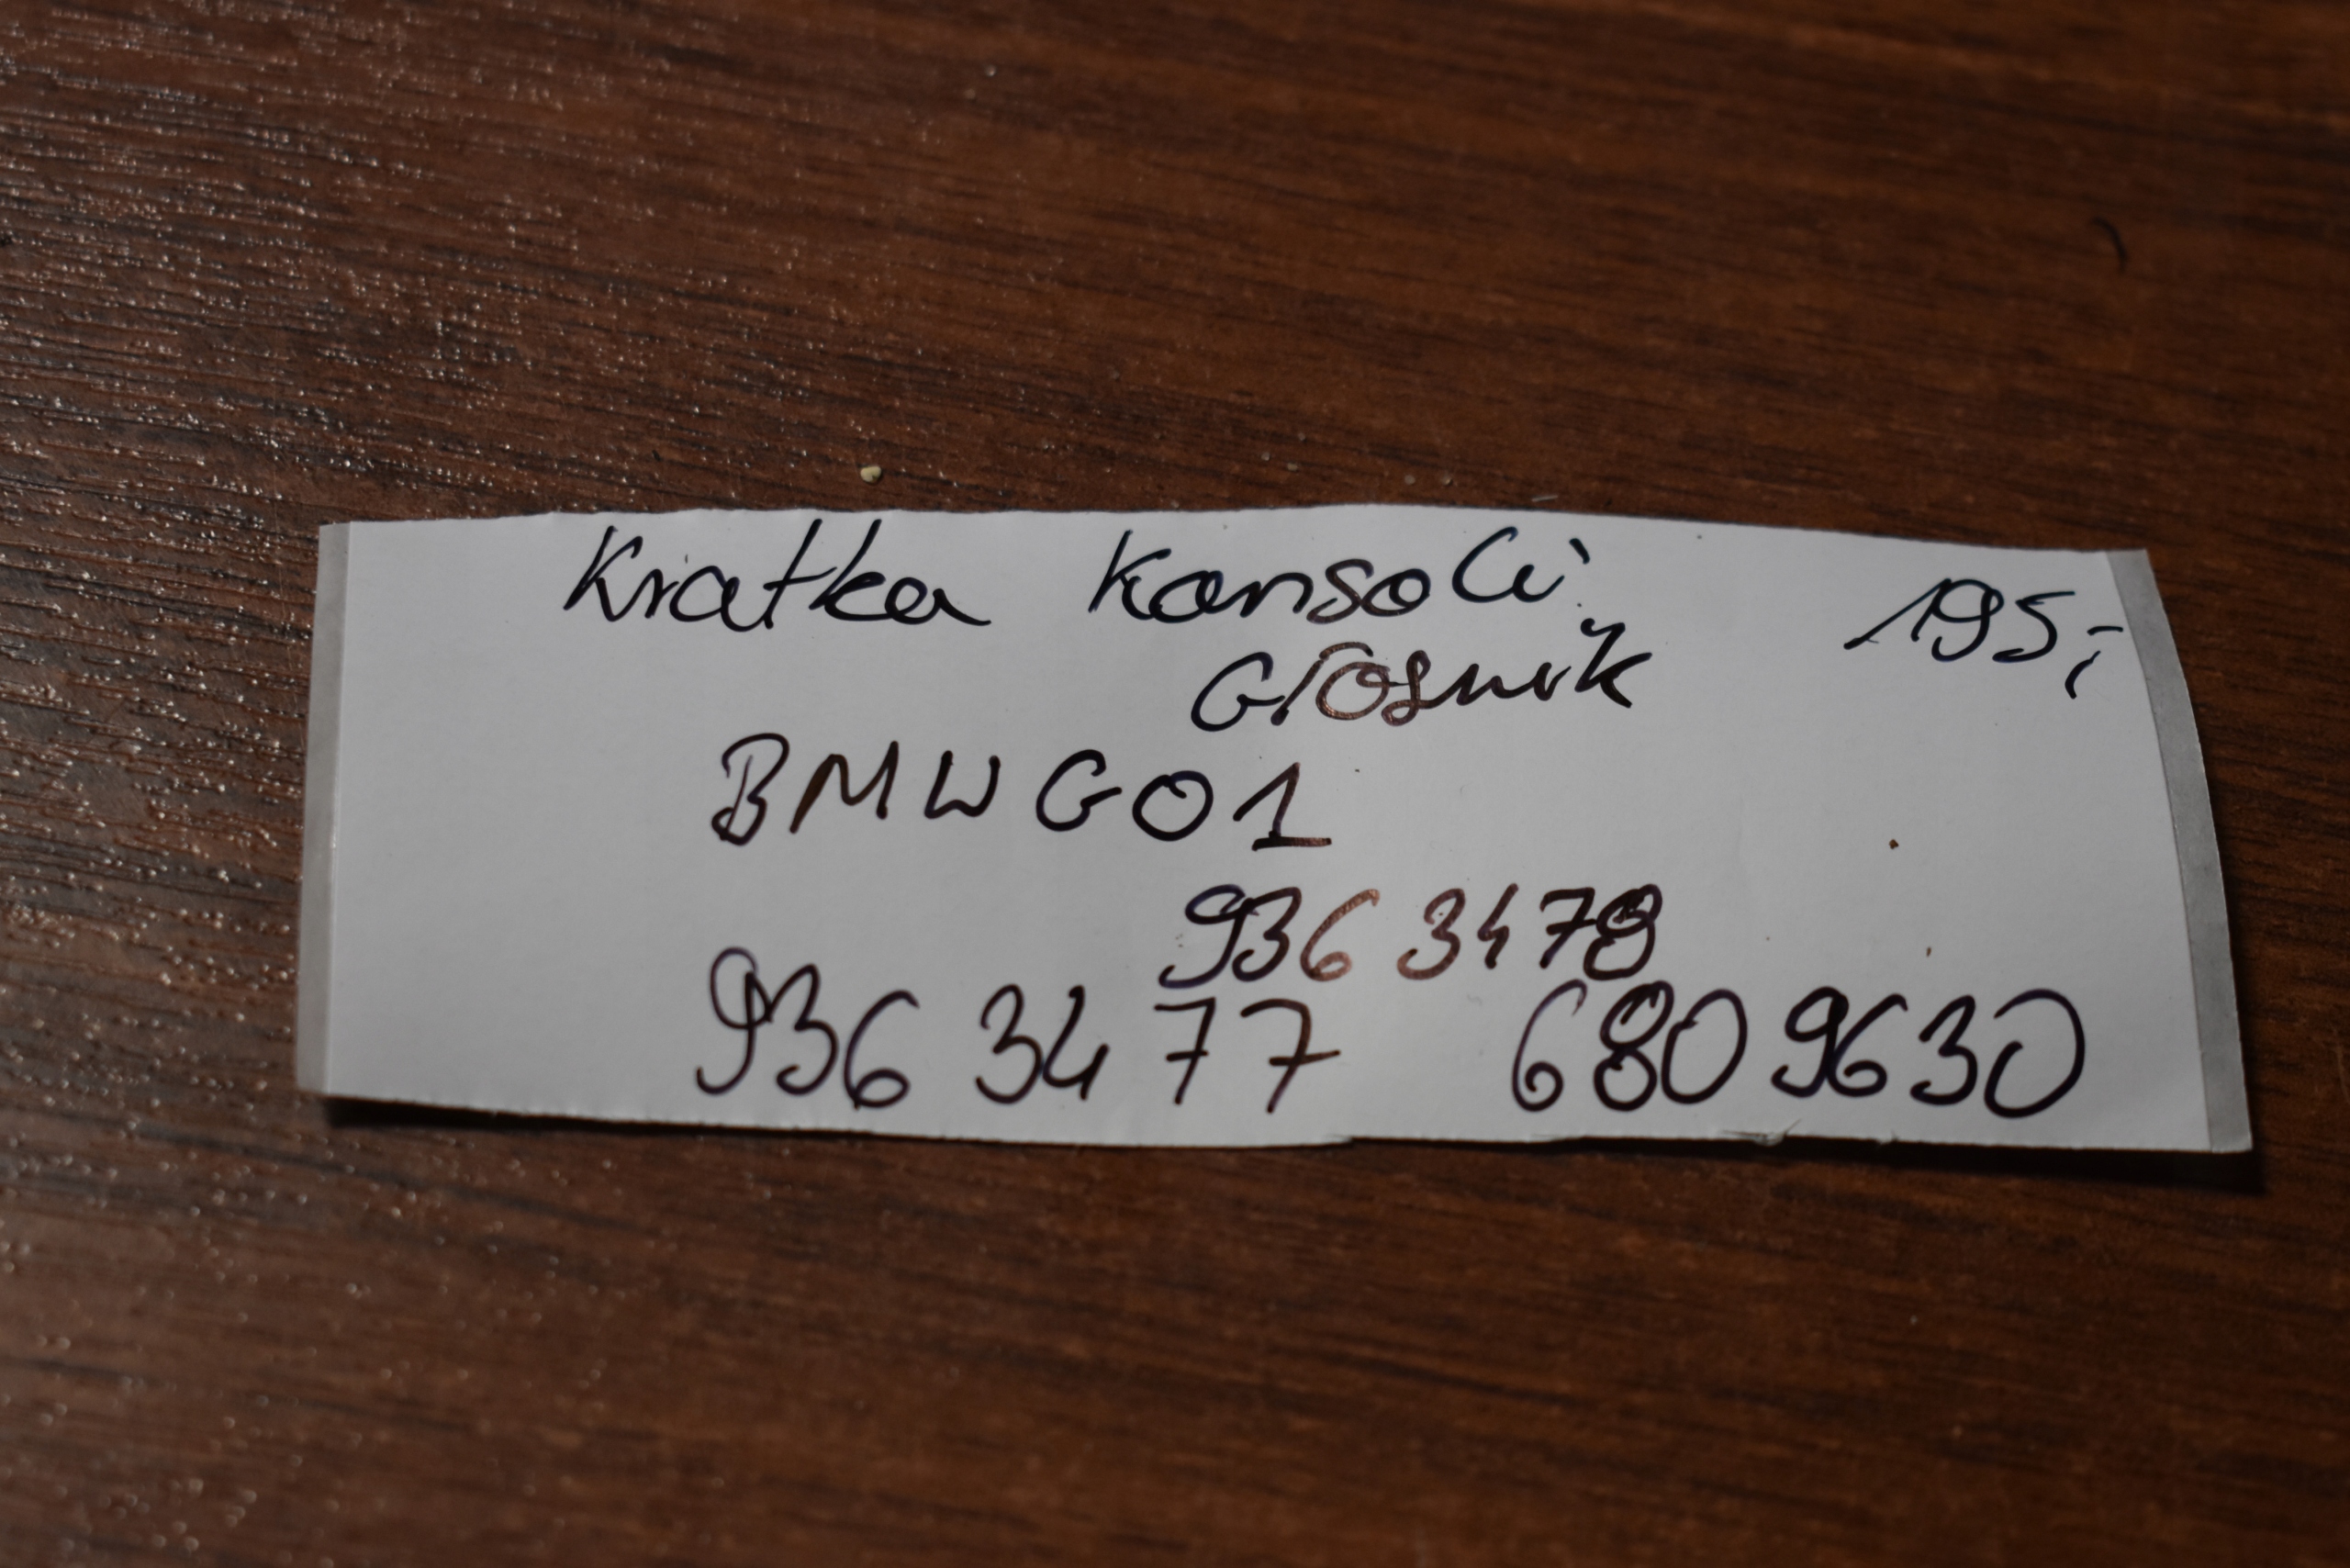 Kratka konsoli 195,-
Głośnik
BMW G01
936 3478
936 3477 680 9630